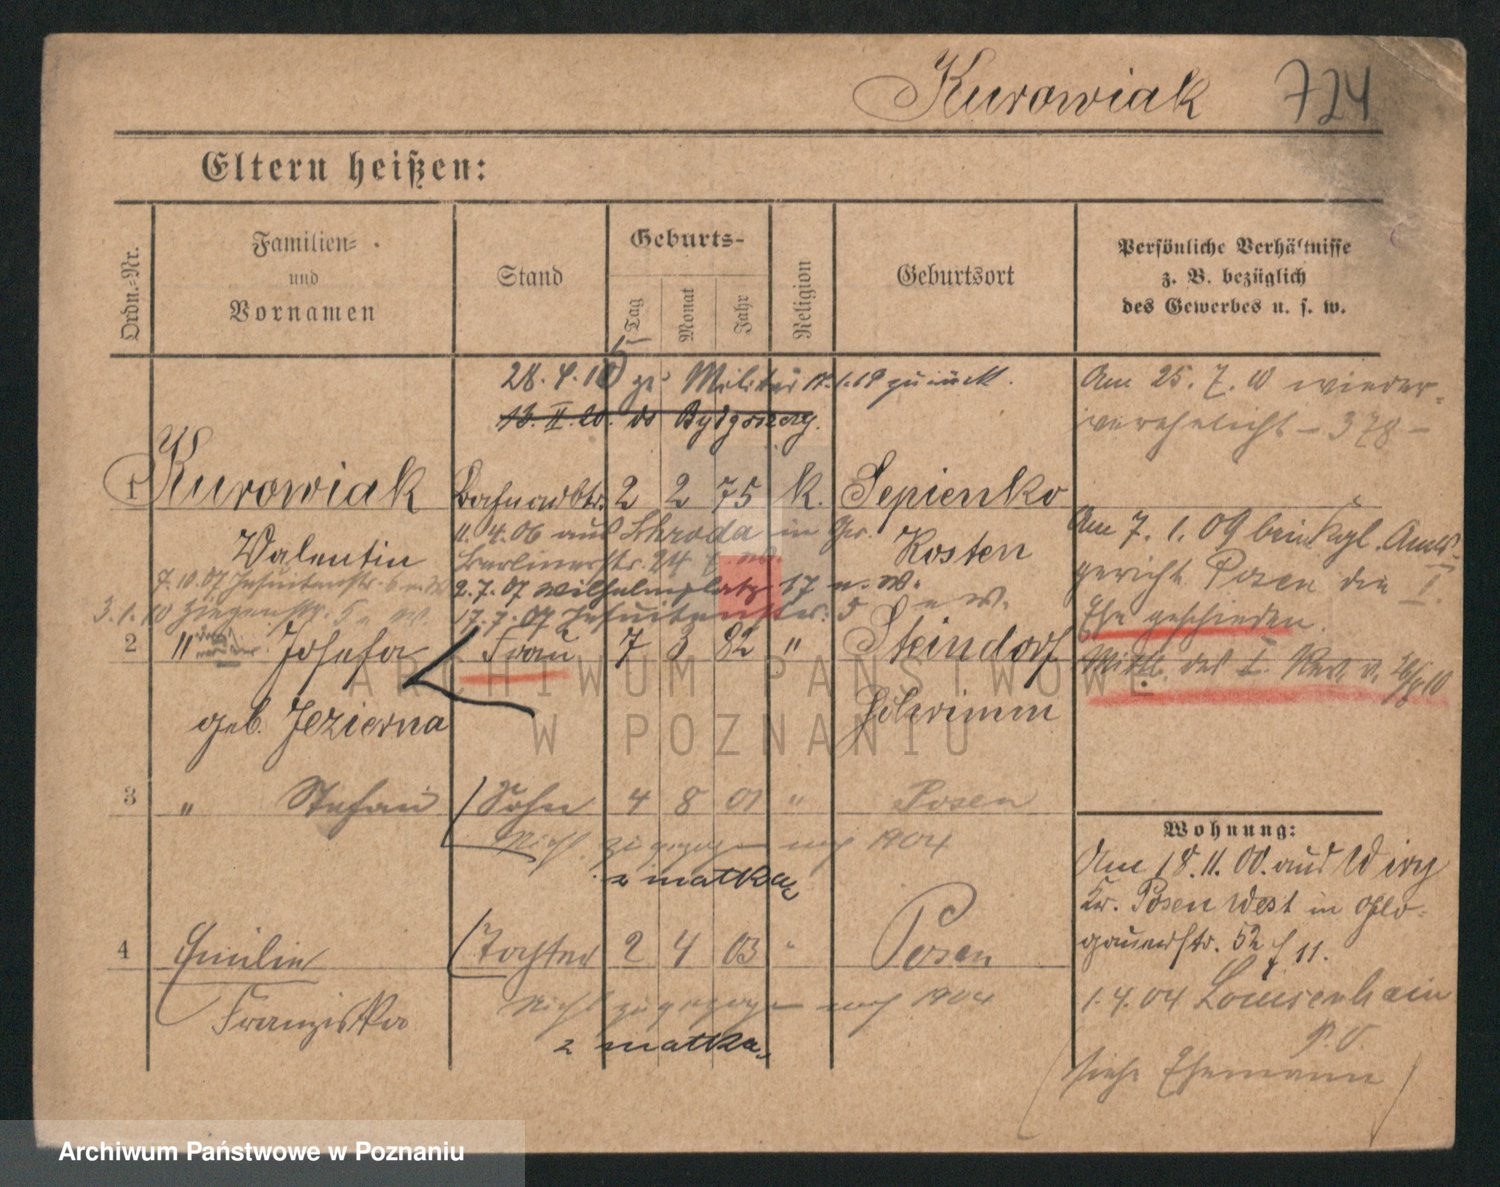 Kurowiak 724
Eltern heißen:
Ordn.-Nr.
Familien-
und
Vornamen
Stand
Geburts-
Tag
Monat
Jahr
Religion
Geburtsort
Persönliche Verhältnisse
z. B. bezüglich
des Gewerbes u. s. w.
28.4.15 zu Militär 17.1.19 zurück.
13.II.20. do Bydgoszczy.
Am 25.7.10 wieder-
verehelicht - 378 -
1 Kurowiak 2 2 75 k. Sepienko
11.4.06 aus Schroda in Gr.
Valentin Kosten
Berlinerstr. 24
7.10.07 Jesuitenstr. 6
2.7.07 Wilhelmplatz 17 n. W.
3.1.10 Ziegenstr. 5 n W
17.7.07 Jesuitenstr. 5 n W.
Am 7.1.09 beim Kgl. Amts-
gericht Posen die
Ehe geschieden.
2 " Josefa Frau 7 3 82 " Steindorf
Mittl. des I. Rev. v.
geb. Jezierna Schrimm
3 " Stefan Sohn 4 8 01 " Posen
Nicht zugezogen 1904
z matką
Wohnung:
Am 18.11.00. aus Wiry
Kr. Posen West in Glo-
gauerstr. 52 11.
4 Emilie Tochter 2 4 03 " Posen
1.4.04 Louisenhain
P.O
Franziska
Nicht zugezogen 1904
z matką
(siehe Ehemann)
ARCHIWUM PAŃSTWOWE
W POZNANIU
Archiwum Państwowe w Poznaniu